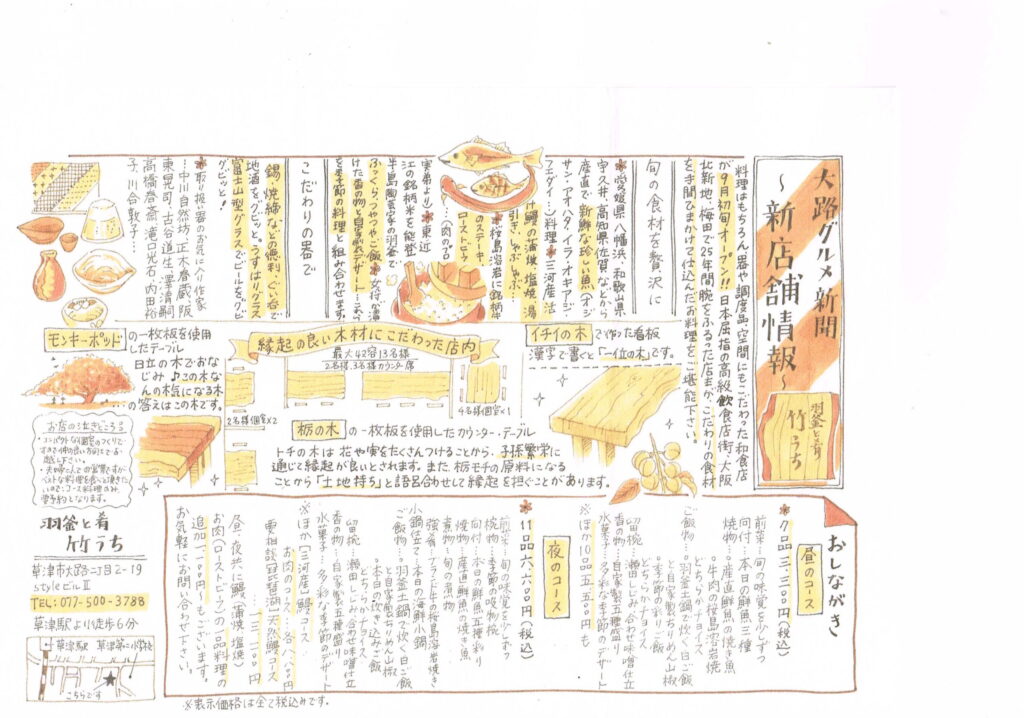 大路グルメ新聞
〜新店舗情報〜
羽釜と肴
竹うち
料理はもちろん器や調度品、空間にもこだわった和食店
が9月初旬オープン!!日本屈指の高級飲食店街・大阪
北新地、梅田で25年間腕をふるった店主が、こだわりの食材
を手間ひまかけて仕込んだお料理をご堪能下さい。
旬の食材を贅沢に
愛媛県八幡浜、和歌山県
産直で新鮮な珍しい魚(オジ
サン・アオハタ・イラ・オキアジ・
フエダイ…)料理
三河産活
け鰻の蒲焼、塩焼、湯
引き、しゃぶしゃぶ…
桜島溶岩に銘柄牛
のステーキ、
ローストビーフ
…(肉のプロ
実弟より)
東近
江の銘柄米を能登
牛島陶芸家の羽釜で
ふっくらつやつやご飯
女将が漬
けた香の物と自家製デザート…
を季節の料理と組み合わせます。
こだわりの器で
錫、焼締などの徳利、ぐい呑で
地酒をグビッと。うすはりグラス、
富士山型グラスでビールをグッ
グビッと!
取り扱い器のお気に入り作家
…中川自然坊、正木春蔵、阪
東晃司、古谷道生、澤清嗣、
高橋春斎、浦口光石、内田裕
子、川合敦子…
モンキーポッドの一枚板を使用
したテーブル
日立の木でおな
じみ♪この木な
んの木気になる木
の答えはこの木です。
縁起の良い木材にこだわった店内
最大42容13名様
2名様、3名様カウンター席
2名様個室×2
4名様個室×1
イチイの木で作った看板
漢字で書くと「一位の木」です。
栃の木の一枚板を使用したカウンター・テーブル
トチの木は花や実をたくさんつけることから、子孫繁栄に
通じて縁起が良いとされます。また、栃モチの原料になる
ことから「土地持ち」と語呂合せして縁起を担ぐことがあります。
お店の泣きどころ
・コンパクトな個室のつくりで
羽釜と肴
竹うち
草津市大路二丁目2-19
styleビルⅡ
TEL:077-500-3788
草津駅より徒歩6分
草津駅
草津第二小学校
こちらです
おしながき
昼のコース
7品 三、三〇〇円(税込)
前菜…旬の味覚を少しずつ
向付…本日の鮮魚三種
焼物…産直鮮魚の焼き魚
○牛肉の桜島溶岩焼
どちらかチョイス
ご飯物…○羽釜土鍋で炊く白ご飯
と自家製ちりめん山椒
○季節の彩りご飯
どちらかチョイス
留椀…瀬田しじみ合わせ味噌仕立
香の物…自家製五種盛り
水菓子…多彩な季節のデザート
※ほか10品 五、五〇〇円も
夜のコース
11品 六、六〇〇円(税込)
前菜…旬の味覚を少しずつ
椀物…季節の吸物椀
向付…本日の鮮魚五種彩り
焼物…産直鮮魚の焼き魚
煮物…旬の煮物
強肴…ブランド牛の桜島溶岩焼き
小鍋仕立て…本日の海鮮小鍋
ご飯物…○羽釜土鍋で炊く白ご飯
と自家製ちりめん山椒
○本日の炊き込みご飯
どちらかチョイス
留椀…瀬田しじみ合わせ味噌仕立
香の物…自家製五種盛り
水菓子…多彩な季節のデザート
※ほか「三河産」鰻コース
お肉のコース
要相談「琵琶湖」天然鰻コース
昼・夜共に鰻(蒲焼・塩焼)、
お肉(ローストビーフ)の一品料理の
追加一、一〇〇円もございます。
お気軽にお問い合わせ下さい。
※表示価格は全て税込みです。